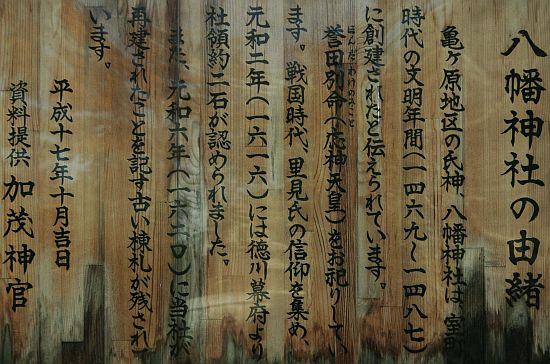 八幡神社の由緒
亀ヶ原地区の氏神、八幡神社は、室町
時代の文明年間(一四六九〜一四八七)
に創建されたと伝えられています。
誉田別命(応神天皇)をお祀りしてい
ほんだわけのみこと
ます。戦国時代、里見氏の信仰を集め、
元和二年(一六一六)には徳川幕府より
社領約二石が認められました。
また、元和六年(一六二〇)に当社が
再建されたことを記す古い棟札が残されて
います。
平成十七年十月吉日
資料提供 加茂神官